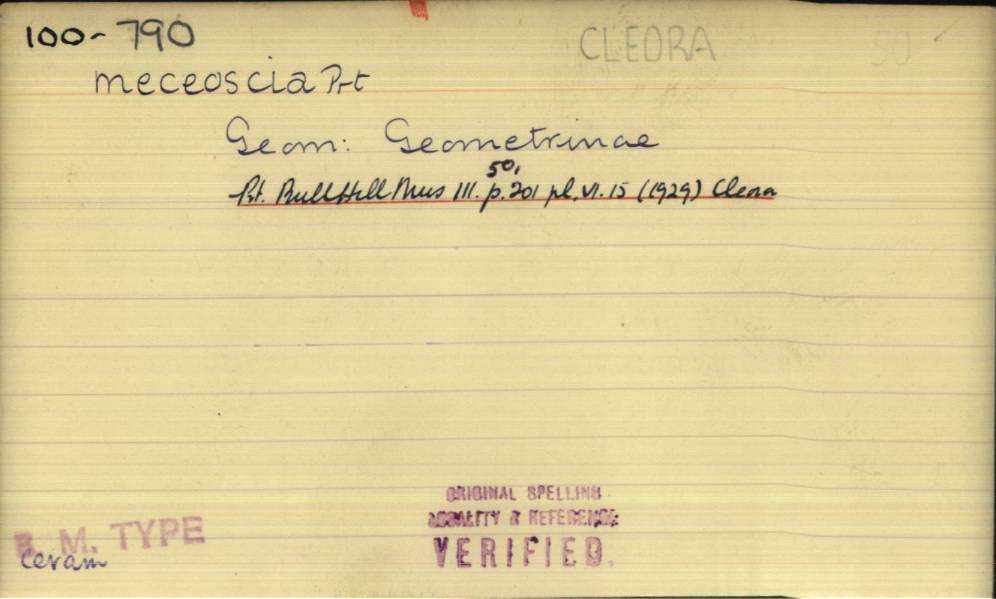 100-790
CLEORA
50
meceoscia Prt
Geom: Geometrinae
50,
Prt. Bull Hill Mus III. p. 201 pl. VI. 15 (1929) Cleora
ORIGINAL SPELLING
LOCALITY & REFERENCE
VERIFIED.
B. M. TYPE
Ceram